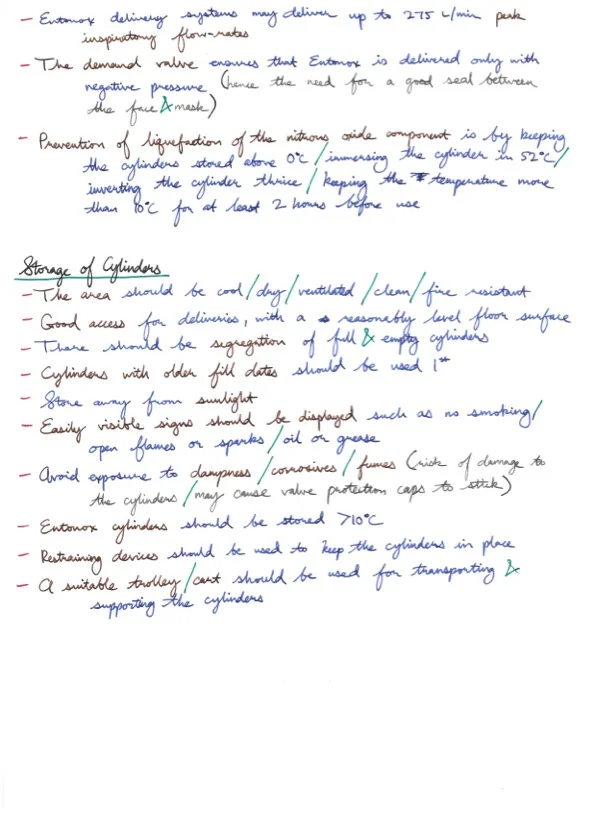 - Entonox delivery systems may deliver up to 275 L/min peak
inspiratory flow-rates
- The demand valve ensures that Entonox is delivered only with
negative pressure (hence the need for a good seal between
the face & mask)
- Prevention of liquefaction of the nitrous oxide component is by keeping
the cylinders stored above 0°C / immersing the cylinder in 52°C /
inverting the cylinder thrice / keeping the temperature more
than 10°C for at least 2 hours before use
Storage of Cylinders
- The area should be cool / dry / ventilated / clean / fire resistant
- Good access for deliveries, with a reasonably level floor surface
- There should be segregation of full & empty cylinders
- Cylinders with older fill dates should be used 1st
- Store away from sunlight
- Easily visible signs should be displayed such as no smoking /
open flames or sparks / oil or grease
- Avoid exposure to dampness / corrosives / fumes (risk of damage to
the cylinders / may cause valve protection caps to stick)
- Entonox cylinders should be stored >10°C
- Restraining devices should be used to keep the cylinders in place
- A suitable trolley / cart should be used for transporting &
supporting the cylinders